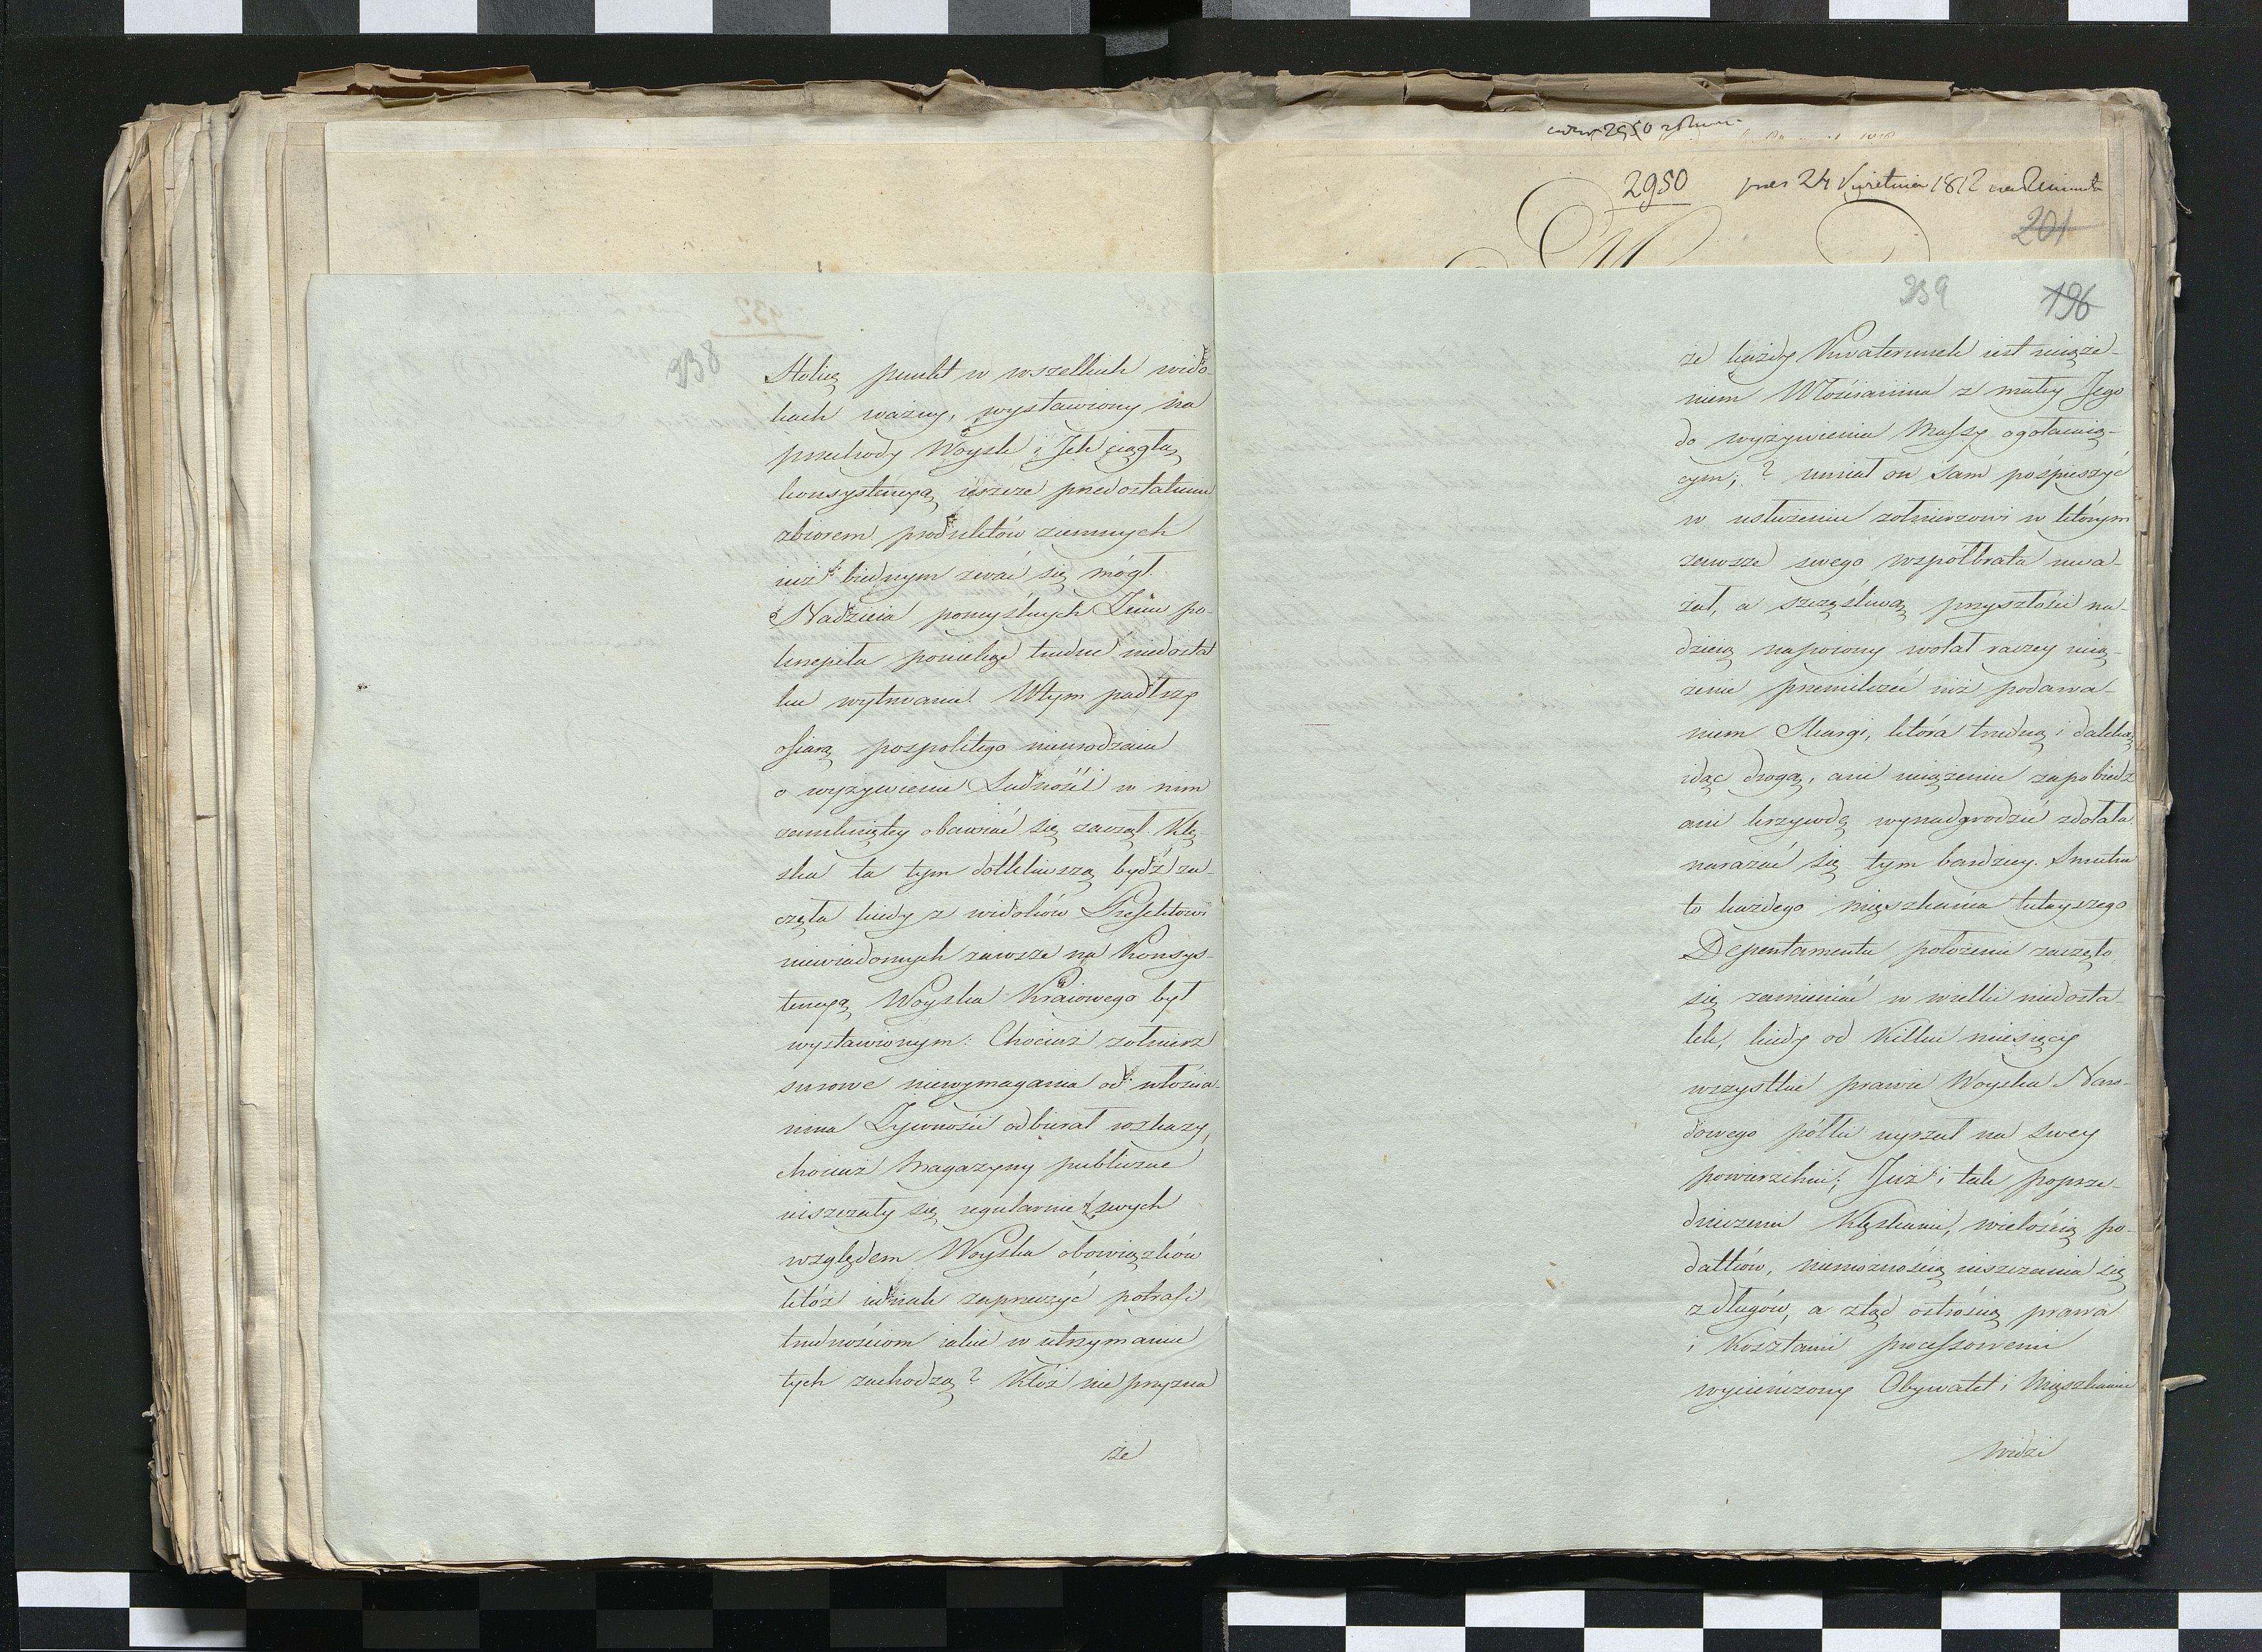 238
Stolicą punkt w wszelkich wido-
kach ważny, wystawiony na
przechody Woysk i Ich ciągłą
konsystencyą ieszcze przed ostatnim
zbiorem produktów ziemnych
iuż biednym zwać się mógł.
Nadzieia pomyślnych Żniw po-
krzepiła poniekąd trudne niedostat
ku wytrwanie. W tym padłszy
ofiarą pospolitego nieurodzaiu
o wyżywienie Ludności w nim
zamkniętey obawiać się zaczął. Klę-
ska ta tym dotkliwszą bydź za-
częła kiedy z widoków Prefektowi
niewiadomych zawsze na Konsys-
tencyą Woyska Kraiowego był
wystawionym: Chociaż żołnierz
surowe niewymagania od włościa-
nina Żywności odbierał rozkazy,
chociaż Magazyny publiczne
uiszczały się regularnie z swych
względem Woyska obowiązków
któż iednak zaprzeczyć potrafi
trudnościom iakie w utrzymaniu
tych zachodzą? Któż nie przyzna
że
2950 201
239 196
że każdy Kwaterunek iest uciąże-
niem Włościanina z małey Jego
do wyżywienia Massy ogołacaią-
cym; ? umiał on sam pośpieszyć
w usłużeniu żołnierzowi w którym
zawsze swego współbrata uwa-
żał, a szczęśliwą przyszłości na-
dzieią napoiony wolał raczey ucią-
żenie przemilczeć niż podawa-
niem Skargi, która trudną i daleką
idąc drogą, ani uciążeniu zapobiedz
ani krzywdę wynadgrodzić zdołała
narażać się tym bardziey. Smutne
to każdego mięszkańca tuteyszego
Departamentu położenie zaczęło
się zamieniać w wielki niedosta-
tek, kiedy od Kilku miesięcy
wszystkie prawie Woyska Naro-
dowego pólki uyrzał na swey
powierzchni; Już i tak poprze-
dniczemi Klęskami, wielością po-
datków, niemożnością uiszczenia się
z długów, a ztąd ostrością prawa
i Kosztami processowemi
wycieńczony Obywatel i Mięszkaniec
widzi